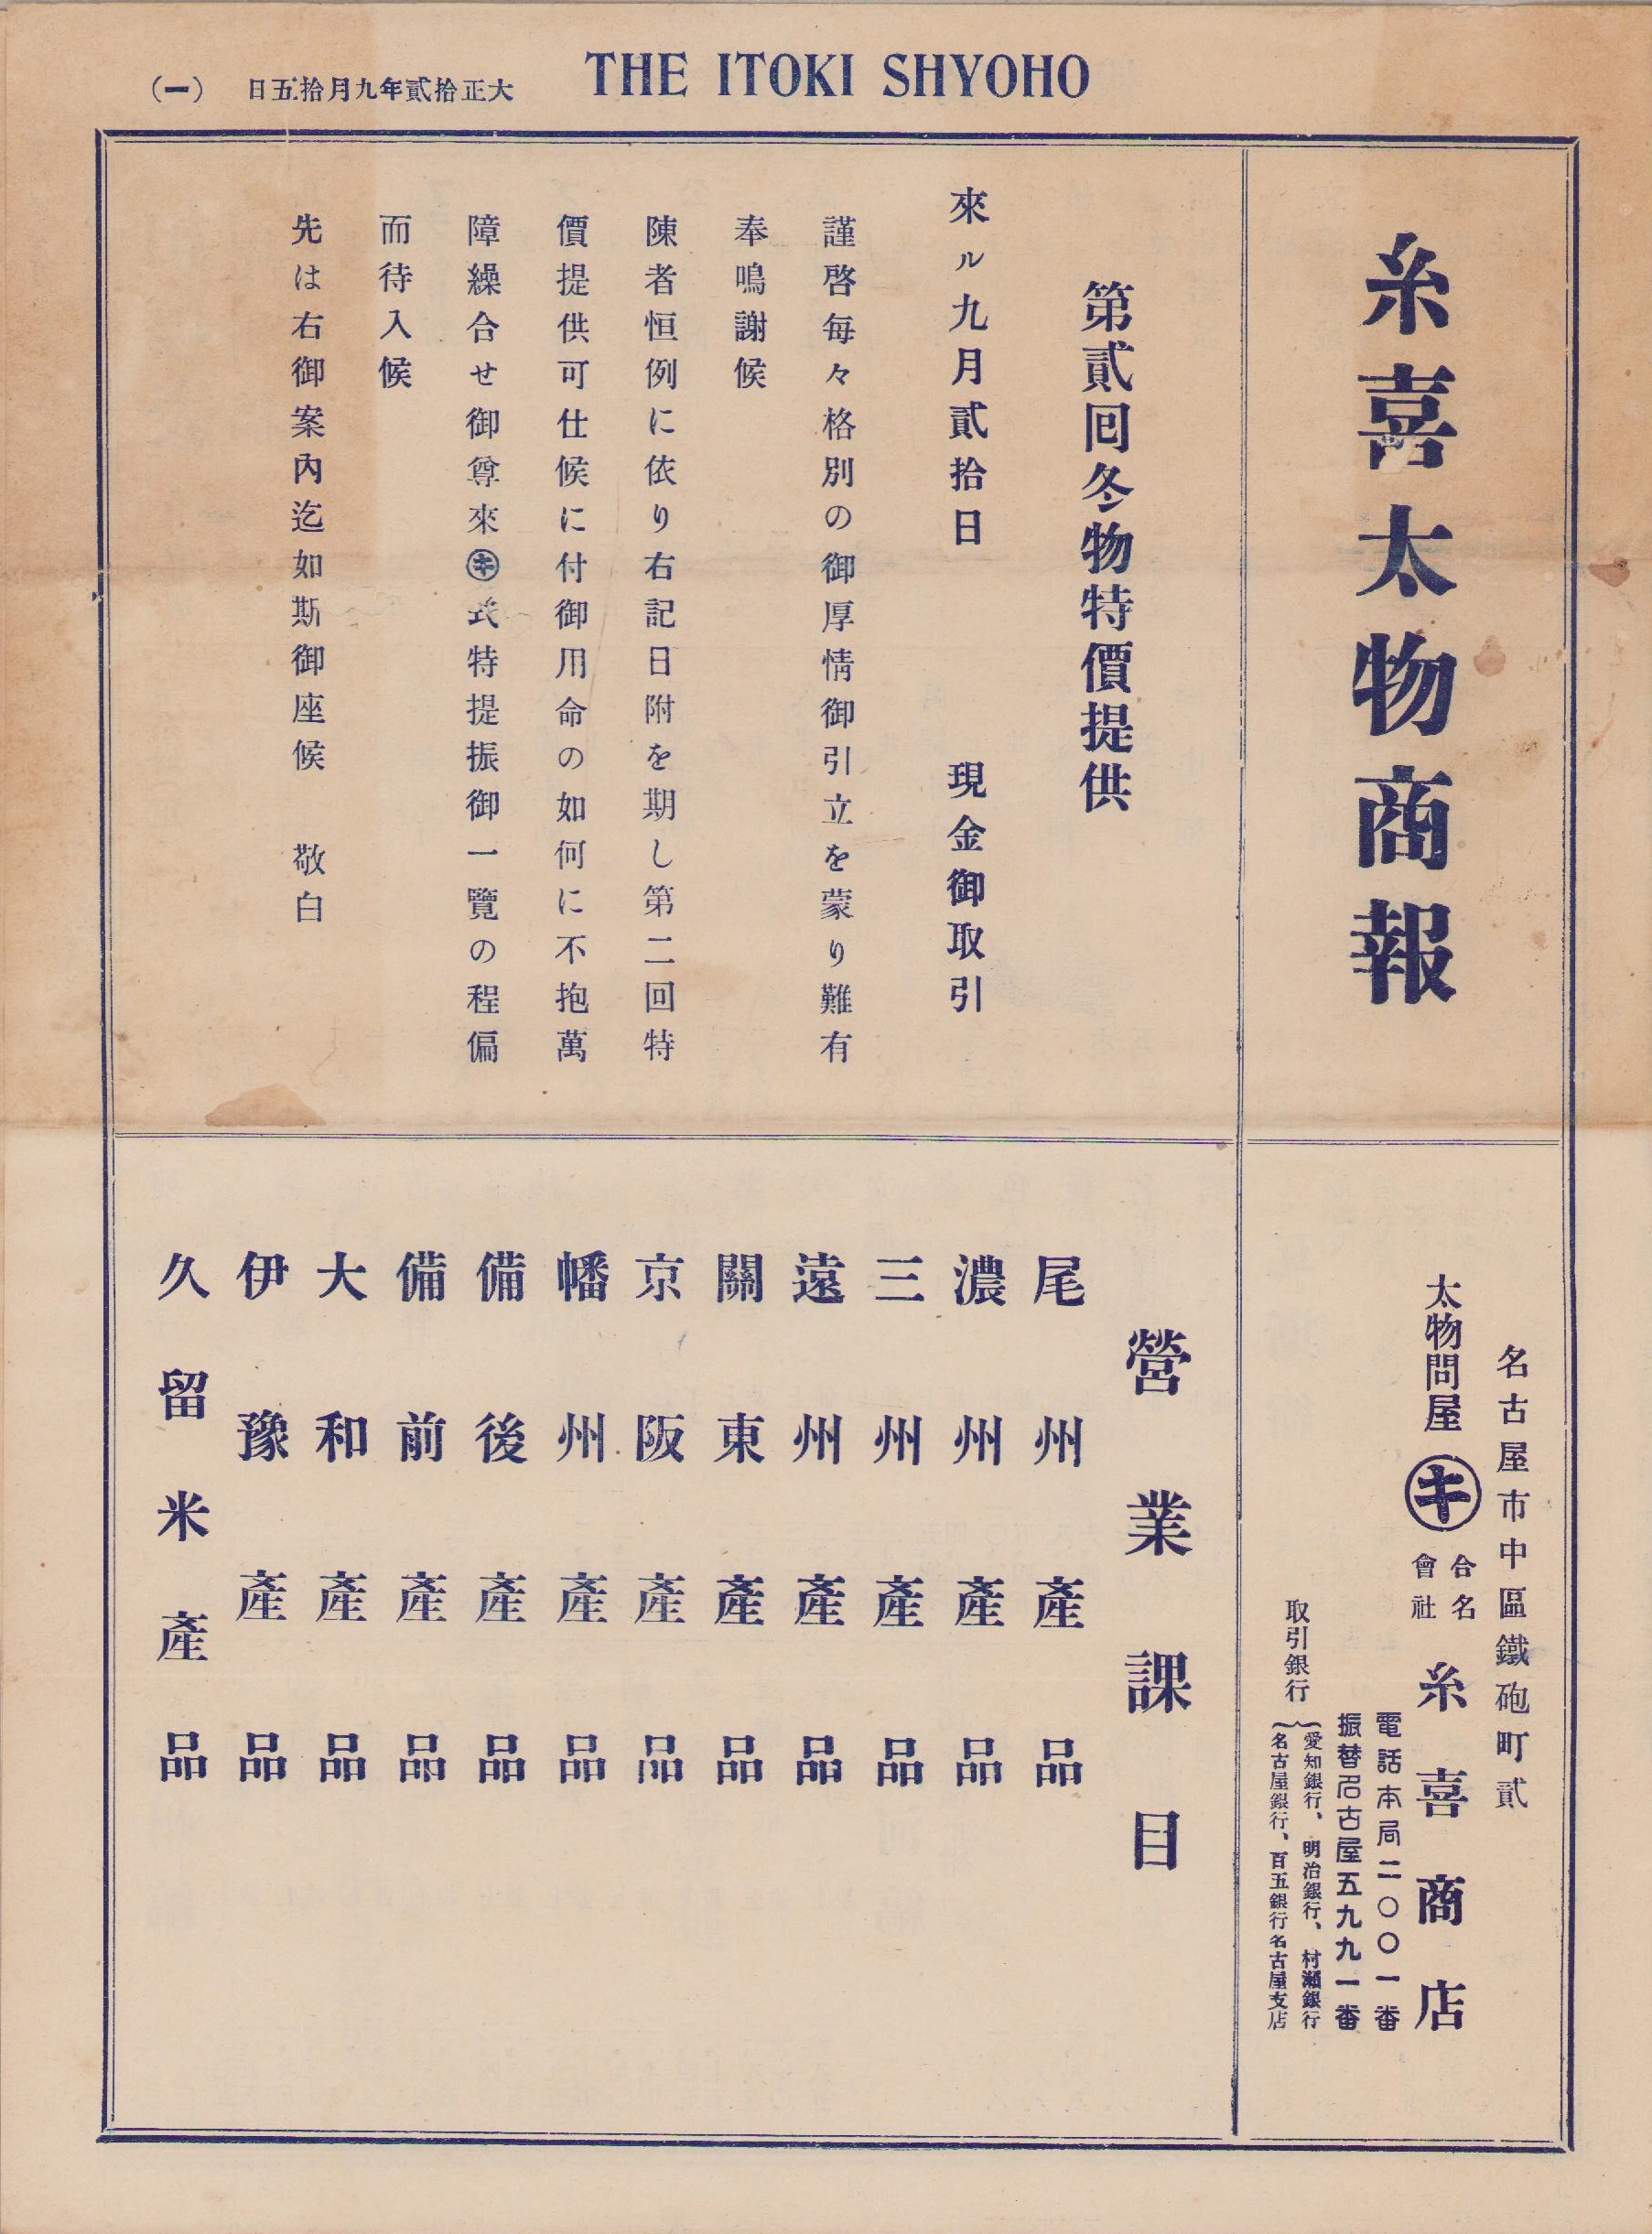 THE ITOKI SHYOHO
大正拾貳年九月拾五日
(一)
糸喜太物商報
第貳囘冬物特價提供
來ル九月貳拾日 現金御取引
謹啓每々格別の御厚情御引立を蒙り難有
奉鳴謝候
陳者恒例に依り右記日附を期し第二回特
價提供可仕候に付御用命の如何に不抱萬
障繰合せ御尊來㋖式特提振御一覽の程偏
而待入候
先は右御案內迄如斯御座候 敬白
名古屋市中區鐵砲町貳
太物問屋 ㋖ 合名會社 糸喜商店
電話本局二〇〇一番
振替名古屋五九九一番
取引銀行
愛知銀行、明治銀行、村瀬銀行
名古屋銀行、百五銀行名古屋支店
營業課目
尾州產品
濃州產品
三州產品
遠州產品
關東產品
京阪產品
幡州產品
備後產品
備前產品
大和產品
伊豫產品
久留米產品